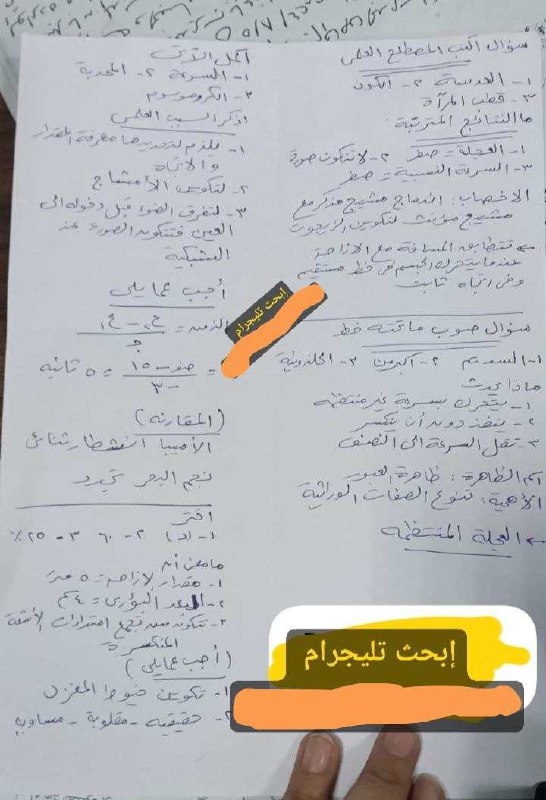 سؤال اكتب المصطلح العلمي
١- العدسة ٢- الكون
٣- قطب المرآة
ما النتائج المترتبة
١- العجلة = صفر ٢- لا تتكون صورة
٣- السرعة النسبية = صفر
الاخصاب : اندماج مشيج مذكر مع
مشيج مؤنث لتكوين الزيجوت
تتطابق المسافة مع الازاحة
عندما يتحرك الجسم في خط مستقيم
وفي اتجاه ثابت
سؤال صوب ما تحته خط
١- السديم ٢- اكبر من ٣- الحلزونية
ماذا يحدث
١- يتحرك بسرعة غير منتظمة
٢- ينفذ دون أن ينكسر
٣- تقل السرعة الى النصف
اسم الظاهرة : ظاهرة العبور
الأهمية : تنوع الصفات الوراثية
العجلة المنتظمة
أكمل الآتى
١- السرعة ٢- المحدبة
٣- الكروموسوم
اذكر السبب العلمى
١- يلزم لتحديدها معرفة المقدار
والاتجاه
٢- لتكوين الأمشاج
٣- لتفرق الضوء قبل دخوله الى
العين فتتكون الصورة على
الشبكية
أجب عما يلى
الزمن = ع٢ - ع١
ج
= صفر - ١٥ = ٥ ثانيه
-٣
(المقارنه)
الأميبا انشطار ثنائى
نجم البحر تجدد
أختر
١- (د) ٢- ٦٠ ٣- ٢٥٪
١- مقدار الازاحة = ٥ متر
٢- البعد البؤرى = ٤ سم
٣- تتكون من تجمع امتدادات الأشعة
المنكسرة
(أجب عما يلى)
١- تكوين خيوط المغزل
٢- حقيقيه - مقلوبة - مساويه
إبحث تليجرام
إبحث تليجرام